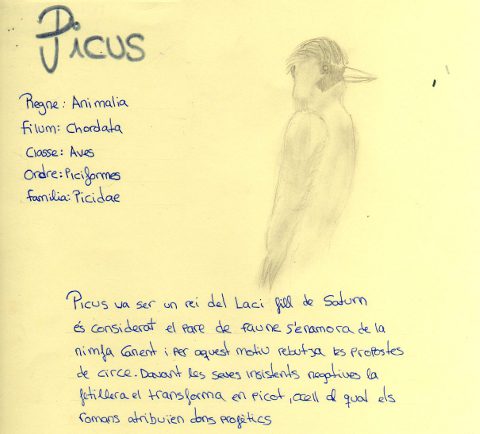 Picus
Regne: Animalia
Filum: Chordata
Classe: Aves
Ordre: Piciformes
Familia: Picidae
Picus va ser un rei del Laci fill de Saturn
és considerat el pare de faune s'enamora de la
nimfa Canent i per aquest motiu rebutja les propostes
de circe. Davant les seves insistents negatives la
fetillera el transforma en picot, ocell al qual els
romans atribuïen dons profètics